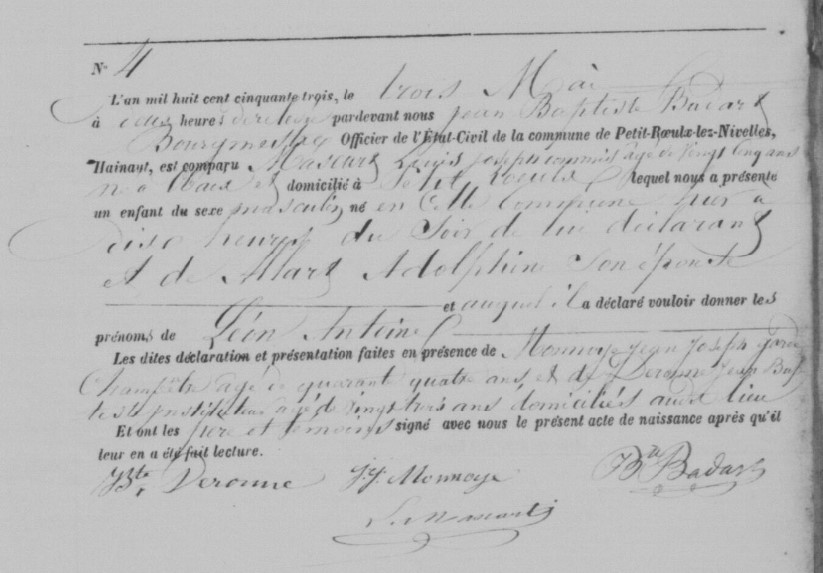 No 4
L'an mil huit cent cinquante trois, le trois Mai
à onze heures pardevant nous Jean Baptiste Badart
Bourgmestre Officier de l'État-Civil de la commune de Petit-Rœulx-lez-Nivelles,
Hainaut, est comparu Mascart Louis Joseph commis agé de vingt cinq ans
né à domicilié à Petit Roeulx lequel nous a présenté
un enfant du sexe masculin, né en cette commune hier à
dix heures du Soir de lui déclarant
et de Allart Adolphine Son épouse
et auquel il a déclaré vouloir donner les
prénoms de Léon Antoine
Les dites déclaration et présentation faites en présence de Monnoye Jean Joseph garde
Champêtre agé de quarante quatre ans, et de Deronne Jean Bap
tiste instituteur agé de vingt trois ans domiciliés audit lieu
Et ont les père et témoins signé avec nous le présent acte de naissance après qu'il
leur en a été fait lecture.
JBte Deronne J.J. Monnoye Bte Badart
L. Mascart